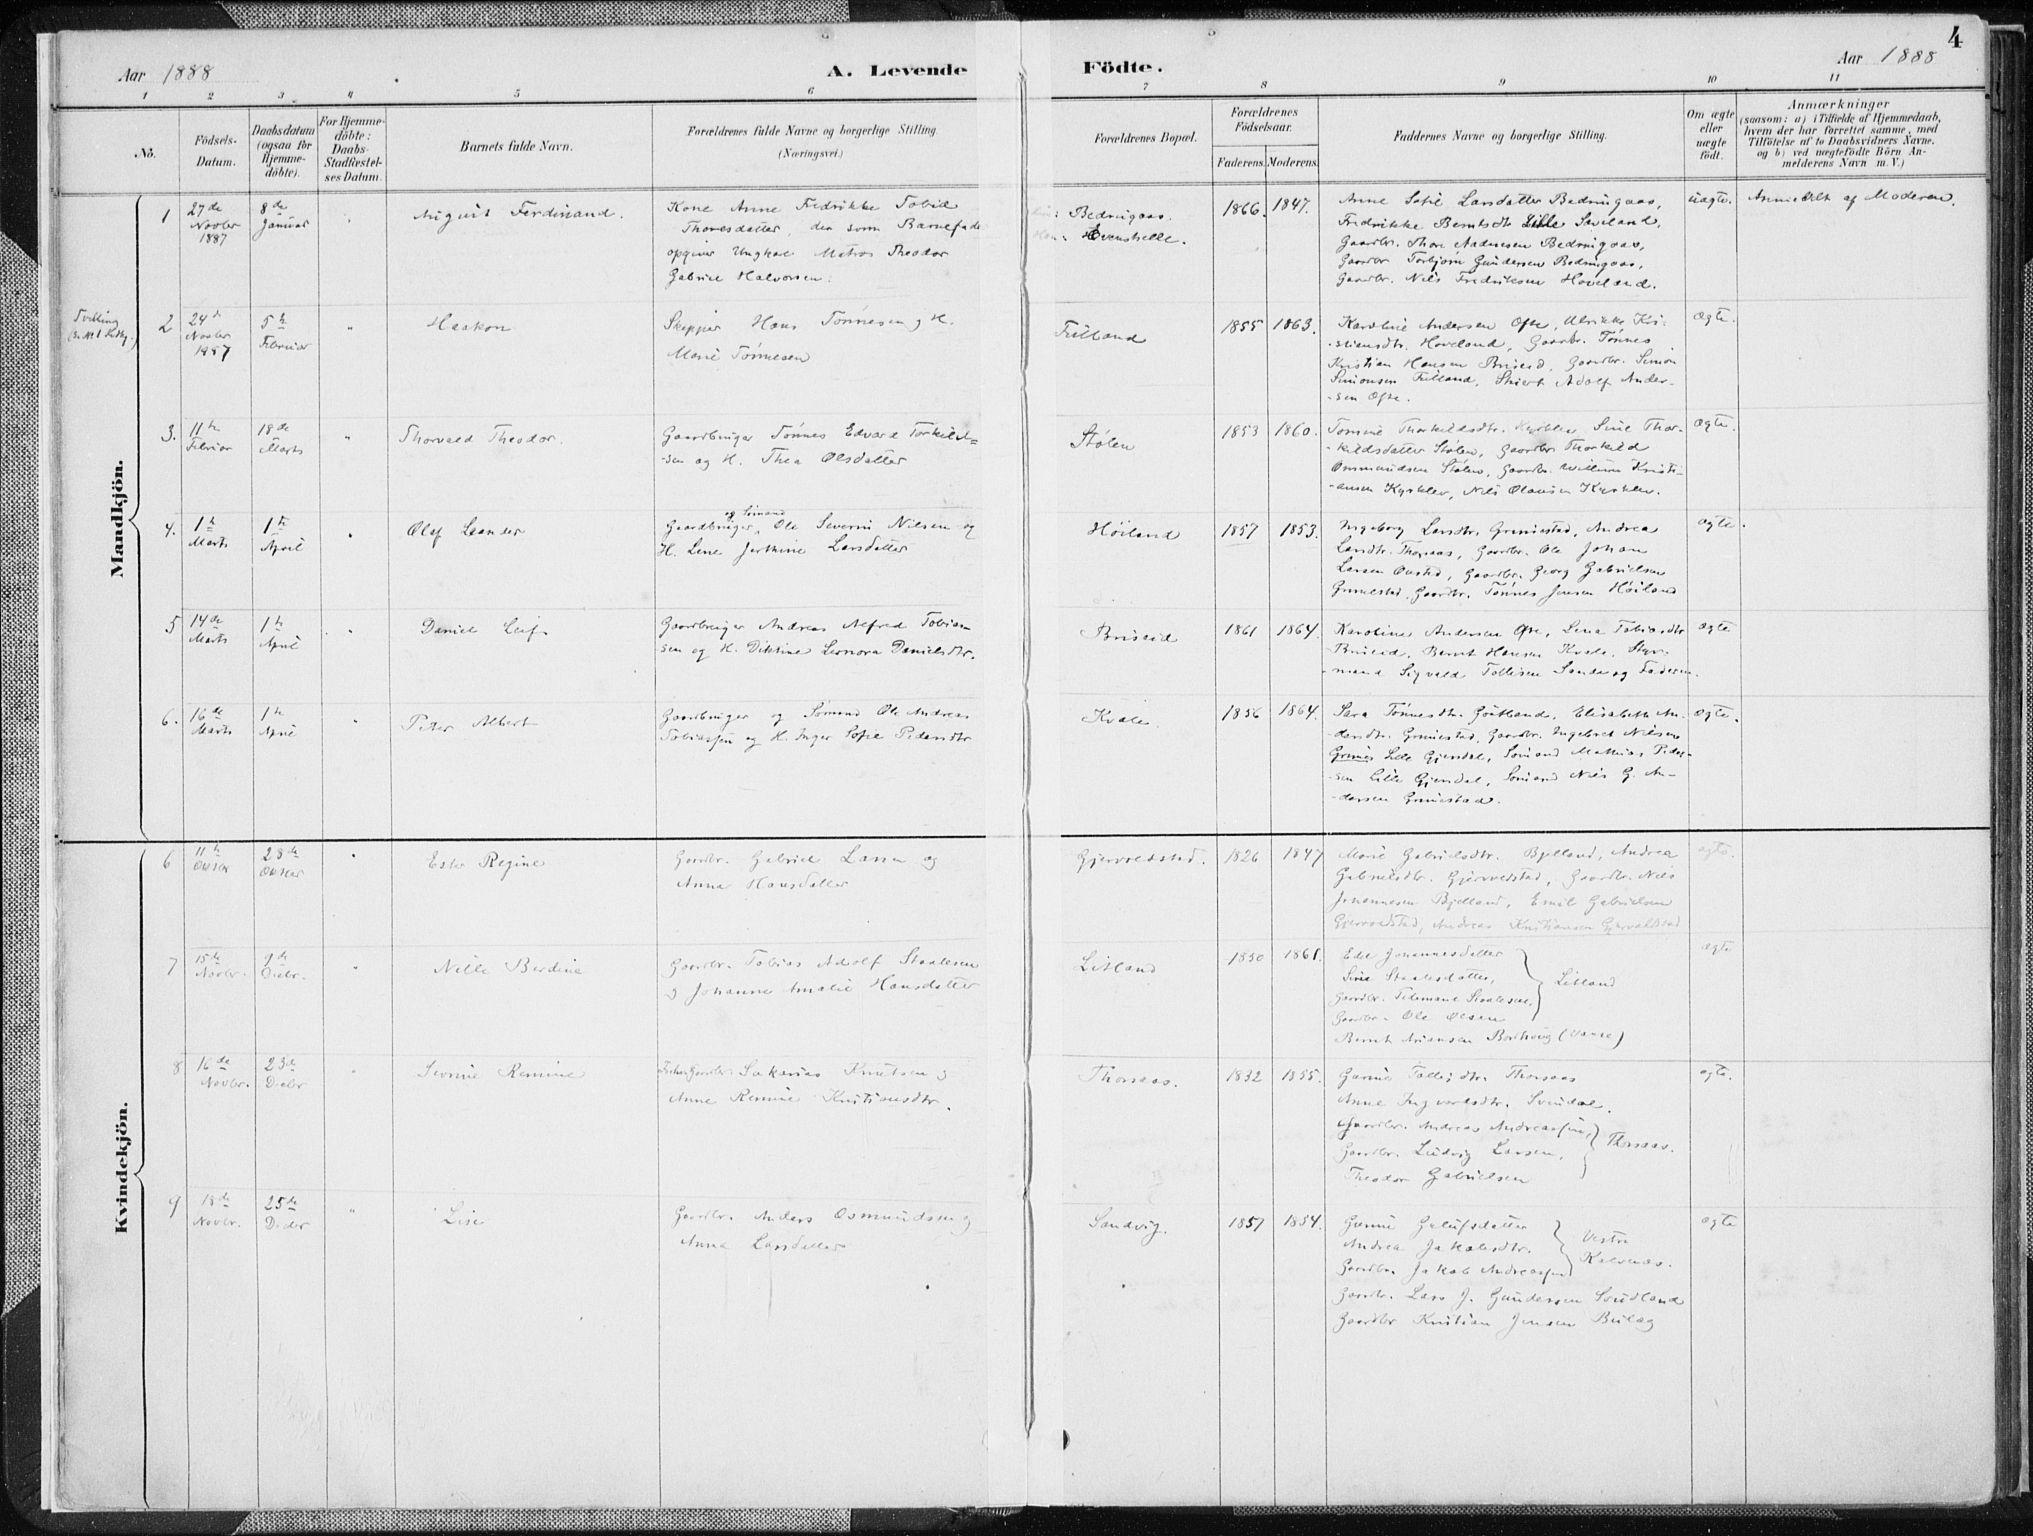 4
Aar 1888
A. Levende
Födte.
Aar 1888
1 2 3 4 5 6 7 8 9 10 11
No.
Födsels-
Datum.
Daabsdatum
(ogsaa for
Hjemme-
döbte).
For Hjemme-
döbte:
Daabs-
Stadfæstel-
ses Datum.
Barnets fulde Navn.
Forældrenes fulde Navne og borgerlige Stilling.
(Næringsvei.)
Forældrenes Bopæl.
Forældrenes
Födselsaar.
Faderens. Moderens.
Faddernes Navne og borgerlige Stilling.
Om ægte
eller
uægte
födt.
Anmærkninger
(saasom: a) i Tilfælde af Hjemmedaab,
hvem der har forrettet samme, med
Tilföielse af to Daabsvidners Navne.
og b) ved uægtefödte Börn An-
melderens Navn m. V.)
Mandkjön.
1
27de
Novbr
1887
8de
Januar
"
August Ferdinand.
Kone Anne Fredrikke Tobia
Thoresdatter, der som Barnefader
opgiver Ungkarl Matros Theodor
Gabriel Halvorsen.
Bedringaas.
Evenstelle.
1866. 1847.
Anne Sofie Larsdatter Bedringaas,
Fredrikke Berntsdtr Lille Søveland,
Gaardbr. Thore Andersen Bedringaas,
Gaardbr Torbjørn Gundersen Bedringaas,
Gaardbr. Nils Fredriksen Hoveland.
uægte.
Anmeldt af Moderen.
Tvilling
2
24de
Novbr
1887
5te
Februar
"
Haakon
Skipper Hans Tønnesen og H.
Marie Tønnesen
Fuland
1855 1863.
Karoline Andersen Ofte, Ulrikke Kri-
stiansdtr. Hoveland, Gaardbr. Tønnes
Kristian Hansen Briseid, Gaardbr. Simon
Simonsen Fuland, Adolf Ander-
-sen Ofte.
ægte.
3.
11te
Februar
18de
Marts
"
Thorvald Theodor.
Gaardbruger Tønnes Edvard Torkild-
-sen og H. Thea Olsdatter
Stølen
1853 1860.
Tomine Thorkildsdtr. Kysklev, Sine Thor-
-kildsdatter Stølen, Gaardbr. Thorkild
Osmundsen Stølen, Gaardbr. Willum Kristi-
-ansen Kysklev, Nils Olausen Kysklev.
ægte.
4.
1te
Marts
1te
April
"
Olaf Leander
og Sømand
Gaardbruger, Ole Severin Nilsen og
H. Lene Jørgine Larsdatter
Høiland
1857 1853.
Ingeborg Larsdtr. Grimestad, Andrea
Larsdtr. Thorsaas, Gaardbr. Ole Johan
Larsen Onstad, Gaardbr. Georg Gabrielsen
Grimestad, Gaardbr. Tønnes Jensen Høiland
ægte.
5
14de
Marts
1te
April
"
Daniel Leif.
Gaardbruger Andreas Alfred Tobias-
sen og H. Dikkine Leonora Danielsdtr.
Briseid
1861 1864.
Karoline Andersen Ofte, Lena Tobiasdtr
Briseid, Bernt Hansen Kvale, Styr-
-mand Sigvald Tollisen Sande og Faderen.
ægte
6.
16de
Marts
1te
April
"
Peter Albert
Gaardbruger og Sømand Ole Andreas
Tobiassen og H. Inger Sofie Pedersdtr
Kvale.
1856 1864.
Sara Tønnesdtr. Gøitland, Elisabeth An-
-dersdtr. Grimestad, Gaardbr. Ingebret Nilsen
Lille Gjersdal, Sømand Mathias Peder-
-sen Lille Gjersdal, Sømand Nils G. An-
-dersen Grimestad.
ægte.
Kvindekjön.
6
11te
Oktbr
28de
Oktbr
"
Ester Regine
Gaardbr. Gabriel Larsen og
Anna Hansdatter
Gjervoldstad.
1826 1847
Marie Gabrielsdtr. Bjelland, Andrea
Gabrielsdtr. Gjervoldstad, Gaardbr. Nils
Johannesen Bjelland, Emil Gabrielsen
Gjervoldstad, Andreas Kristiansen Gjervoldstad
ægte.
7
15de
Novbr.
9de
Decbr.
"
Nille Berdine
Gaardbr. Tobias Adolf Staalesen
og Johanne Amalie Hansdatter
Litland
1850 1861.
Edel Johannesdatter
Sine Staalesdatter,
Gaardbr. Tilemand Staalesen,
Gaardbr. Ole Olsen
Litland
Bernt Ariansen Borhaug (Vanse)
ægte
8
16de
Novbr.
23de
Decbr
"
Severine Remine
Gaardbr. Sakarias Knutsen og
Anne Remine Kristiansdtr.
Thorsaas.
1832 1855.
Gurine Tollisdtr. Thorsaas
Anne Ingvardsdtr. Svindal.
Gaardbr. Andreas Andreassen,
Gaardbr. Ludvig Larsen,
Theodor Gabrielsen
Thorsaas.
ægte.
9
18de
Novbr.
25de
Decbr
"
Lise
Gaardbr. Anders Osmundsen og
Anna Larsdatter
Sandvig.
1857 1854.
Gurine Gelufsdatter
Andrea Jakobsdtr.
Gaardbr. Jakob Andreassen
Vestre
Kalvenes.
Gaardbr. Lars J. Gundersen Søndland
Gaardbr Kristian Jensen Birlag
ægte